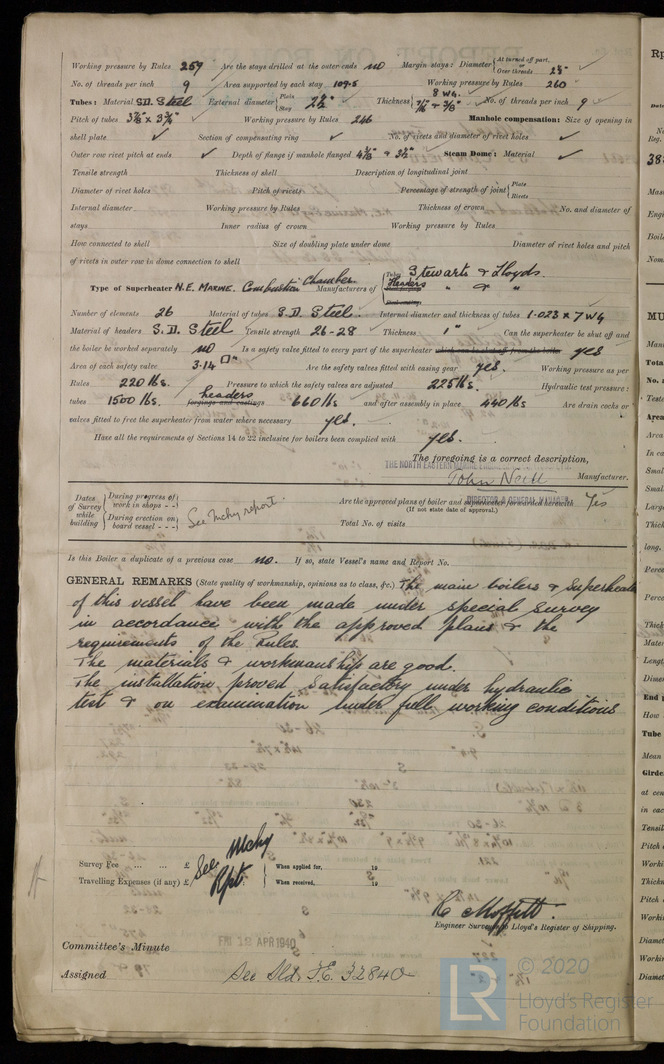 Working pressure by Rules 259 Are the stays drilled at the outer ends no Margin stays: Diameter { At turned off part, or Over threads
No. of threads per inch 9 Area supported by each stay 109.5 Working pressure by Rules 260
Tubes: Material S.D. Steel External diameter { Plain Stay 2½" Thickness { 8 W.G. No. of threads per inch 9
Pitch of tubes Working pressure by Rules 246 Manhole compensation: Size of opening in
shell plate ✓ Section of compensating ring ✓ No. of rivets and diameter of rivet holes ✓
Outer row rivet pitch at ends ✓ Depth of flange if manhole flanged Steam Dome: Material ✓
Tensile strength Thickness of shell Description of longitudinal joint
Diameter of rivet holes Pitch of rivets Percentage of strength of joint { Plate Rivets
Internal diameter Working pressure by Rules Thickness of crown No. and diameter of
stays Inner radius of crown Working pressure by Rules
How connected to shell Size of doubling plate under dome Diameter of rivet holes and pitch
of rivets in outer row in dome connection to shell
Type of Superheater N.E. Marine. Combustion Chamber. Manufacturers of { Tubes Stewarts & Lloyds. Headers " & "
Number of elements 26 Material of tubes S.D. Steel. Internal diameter and thickness of tubes 1.023 x 7 WG
Material of headers S.D. Steel Tensile strength 26-28 Thickness 1" Can the superheater be shut off and
the boiler be worked separately no Is a safety valve fitted to every part of the superheater which can be shut off from the boiler yes
Area of each safety valve 3.14 □" Are the safety valves fitted with easing gear yes. Working pressure as per
Rules 220 lbs. Pressure to which the safety valves are adjusted 225 lbs. Hydraulic test pressure:
tubes 1500 lbs. forgings and castings headers 660 lbs and after assembly in place 440 lbs Are drain cocks or
valves fitted to free the superheater from water where necessary yes.
Have all the requirements of Sections 14 to 22 inclusive for boilers been complied with yes.
The foregoing is a correct description,
THE NORTH EASTERN MARINE
John Neill Manufacturer.
DIRECTOR & GENERAL MANAGER
Dates of Survey while building { During progress of work in shops - - During erection on board vessel - - - } See Mchy report. Are the approved plans of boiler and superheater forwarded herewith Yes
(If not state date of approval.)
Total No. of visits
Is this Boiler a duplicate of a previous case no. If so, state Vessel's name and Report No.
GENERAL REMARKS (State quality of workmanship, opinions as to class, &c.) The main boilers & Superheater
of this vessel have been made under special survey
in accordance with the approved plans & the
requirements of the Rules.
The materials & workmanship are good.
The installation proved satisfactory under hydraulic
test & on examination under full working conditions
Survey Fee ... ... ... £ See Mchy Rpt. { When applied for, 19
Travelling Expenses (if any) £ When received, 19
R. Moffitt.
Engineer Surveyor to Lloyd's Register of Shipping.
Committee's Minute FRI APR 1940
Assigned See F.E. 32840
LR © 2020
Lloyd's Register
Foundation